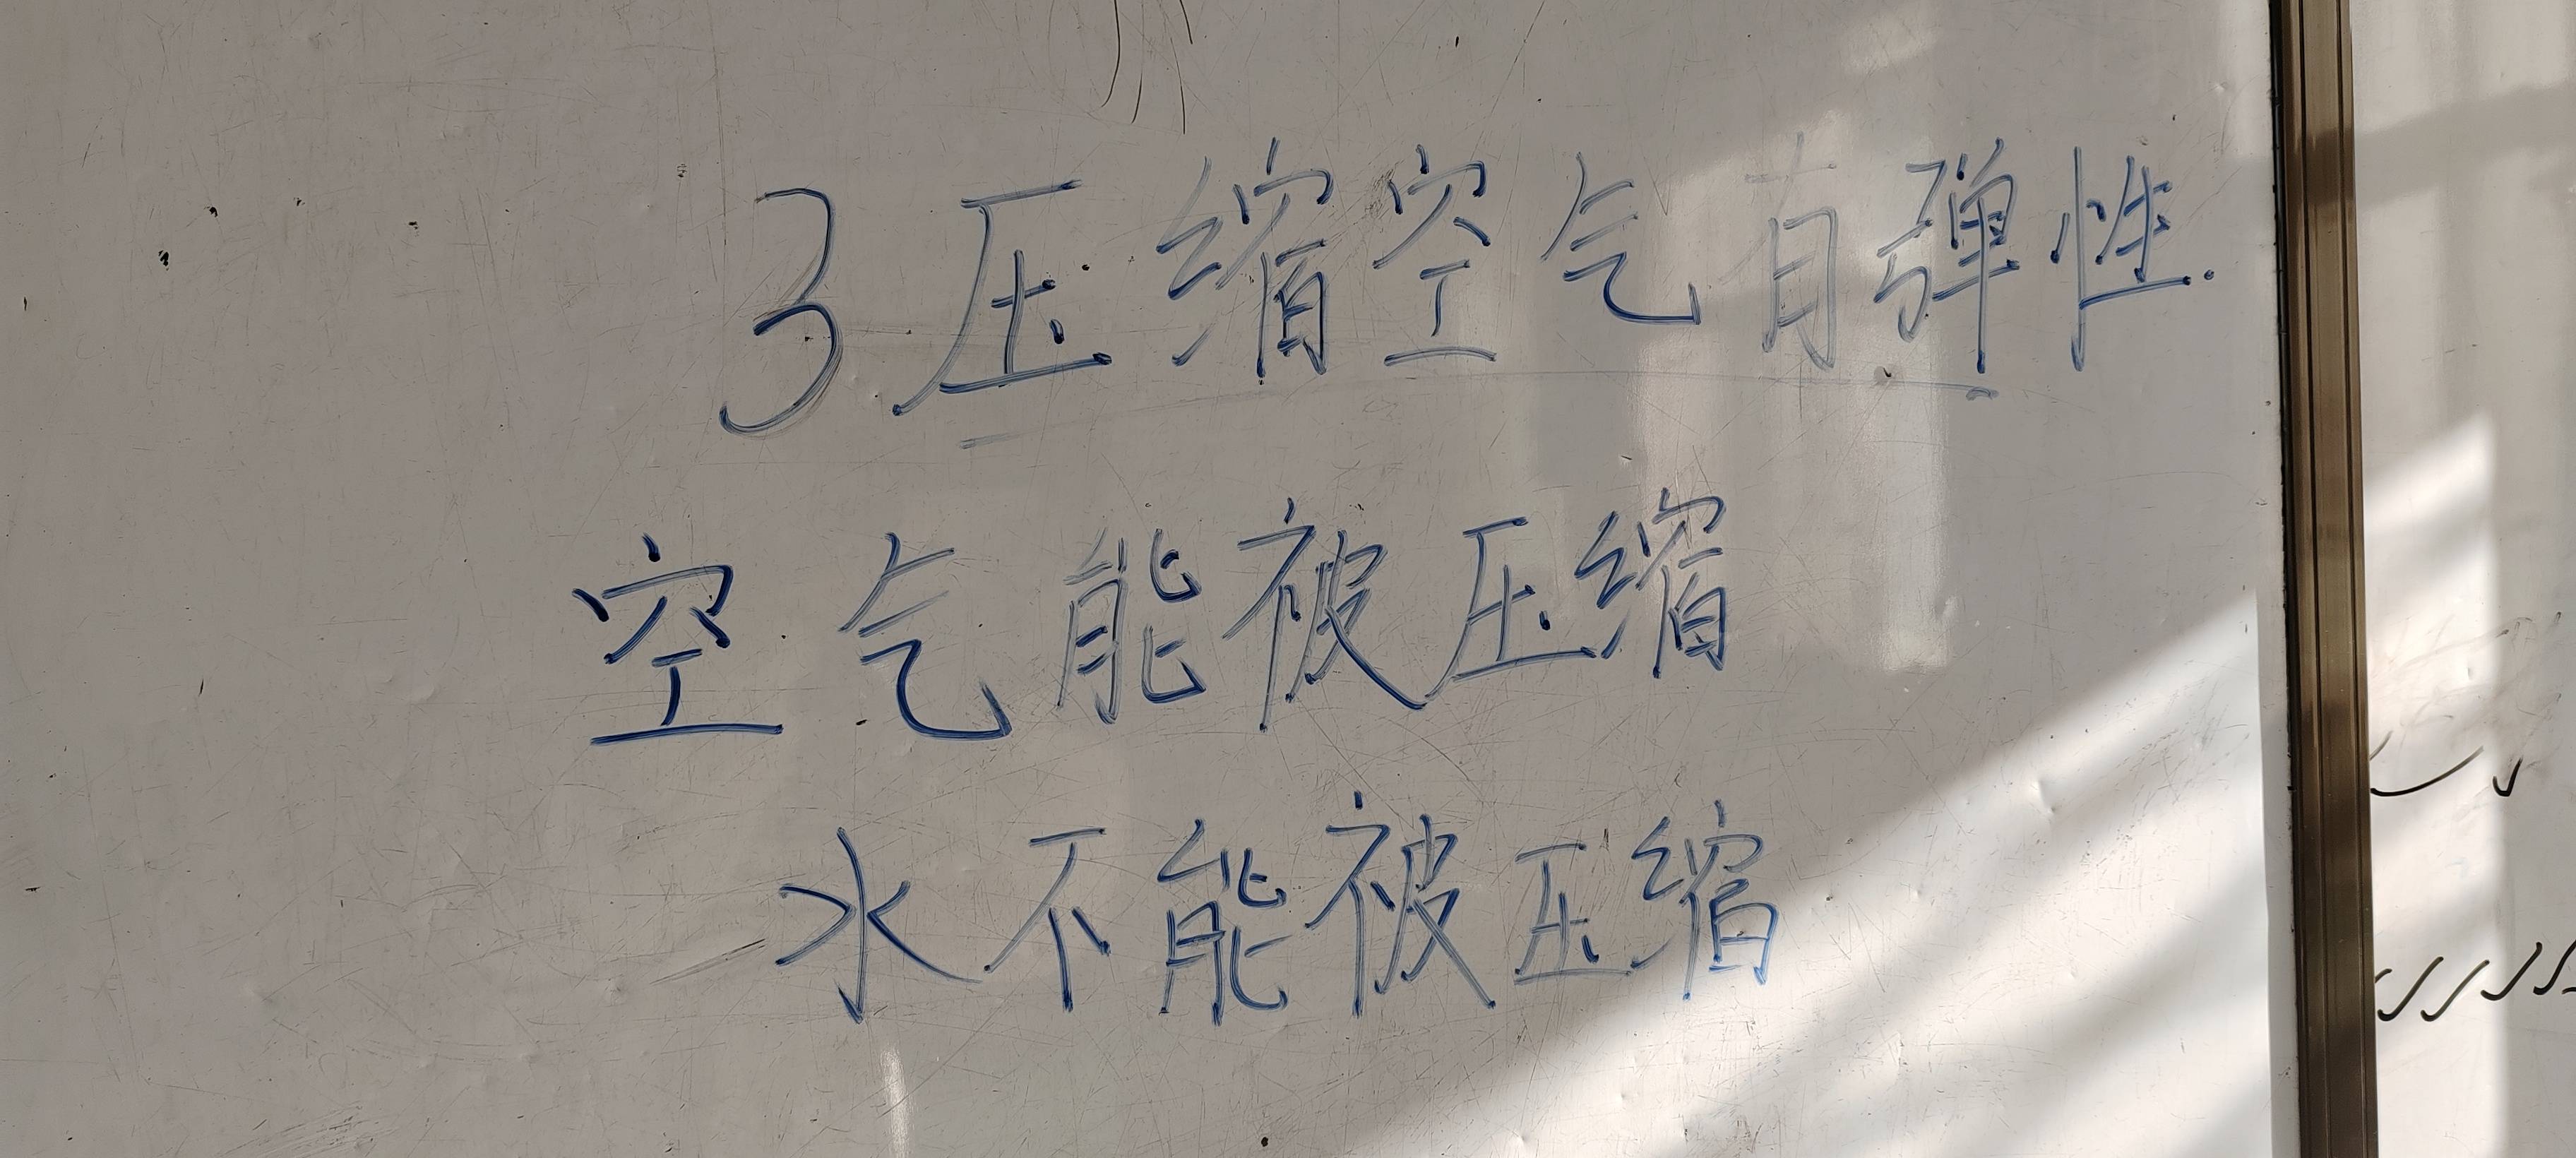 3.压缩空气有弹性.
空气能被压缩
水不能被压缩